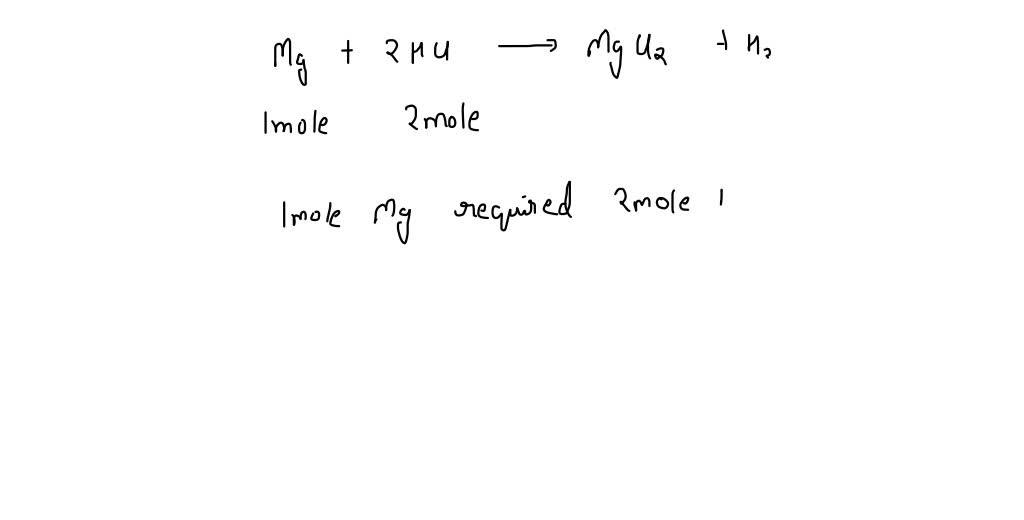 Mg + 2HCl ⟶ MgCl2 + H2
1mole 2mole
1mole Mg required 2mole